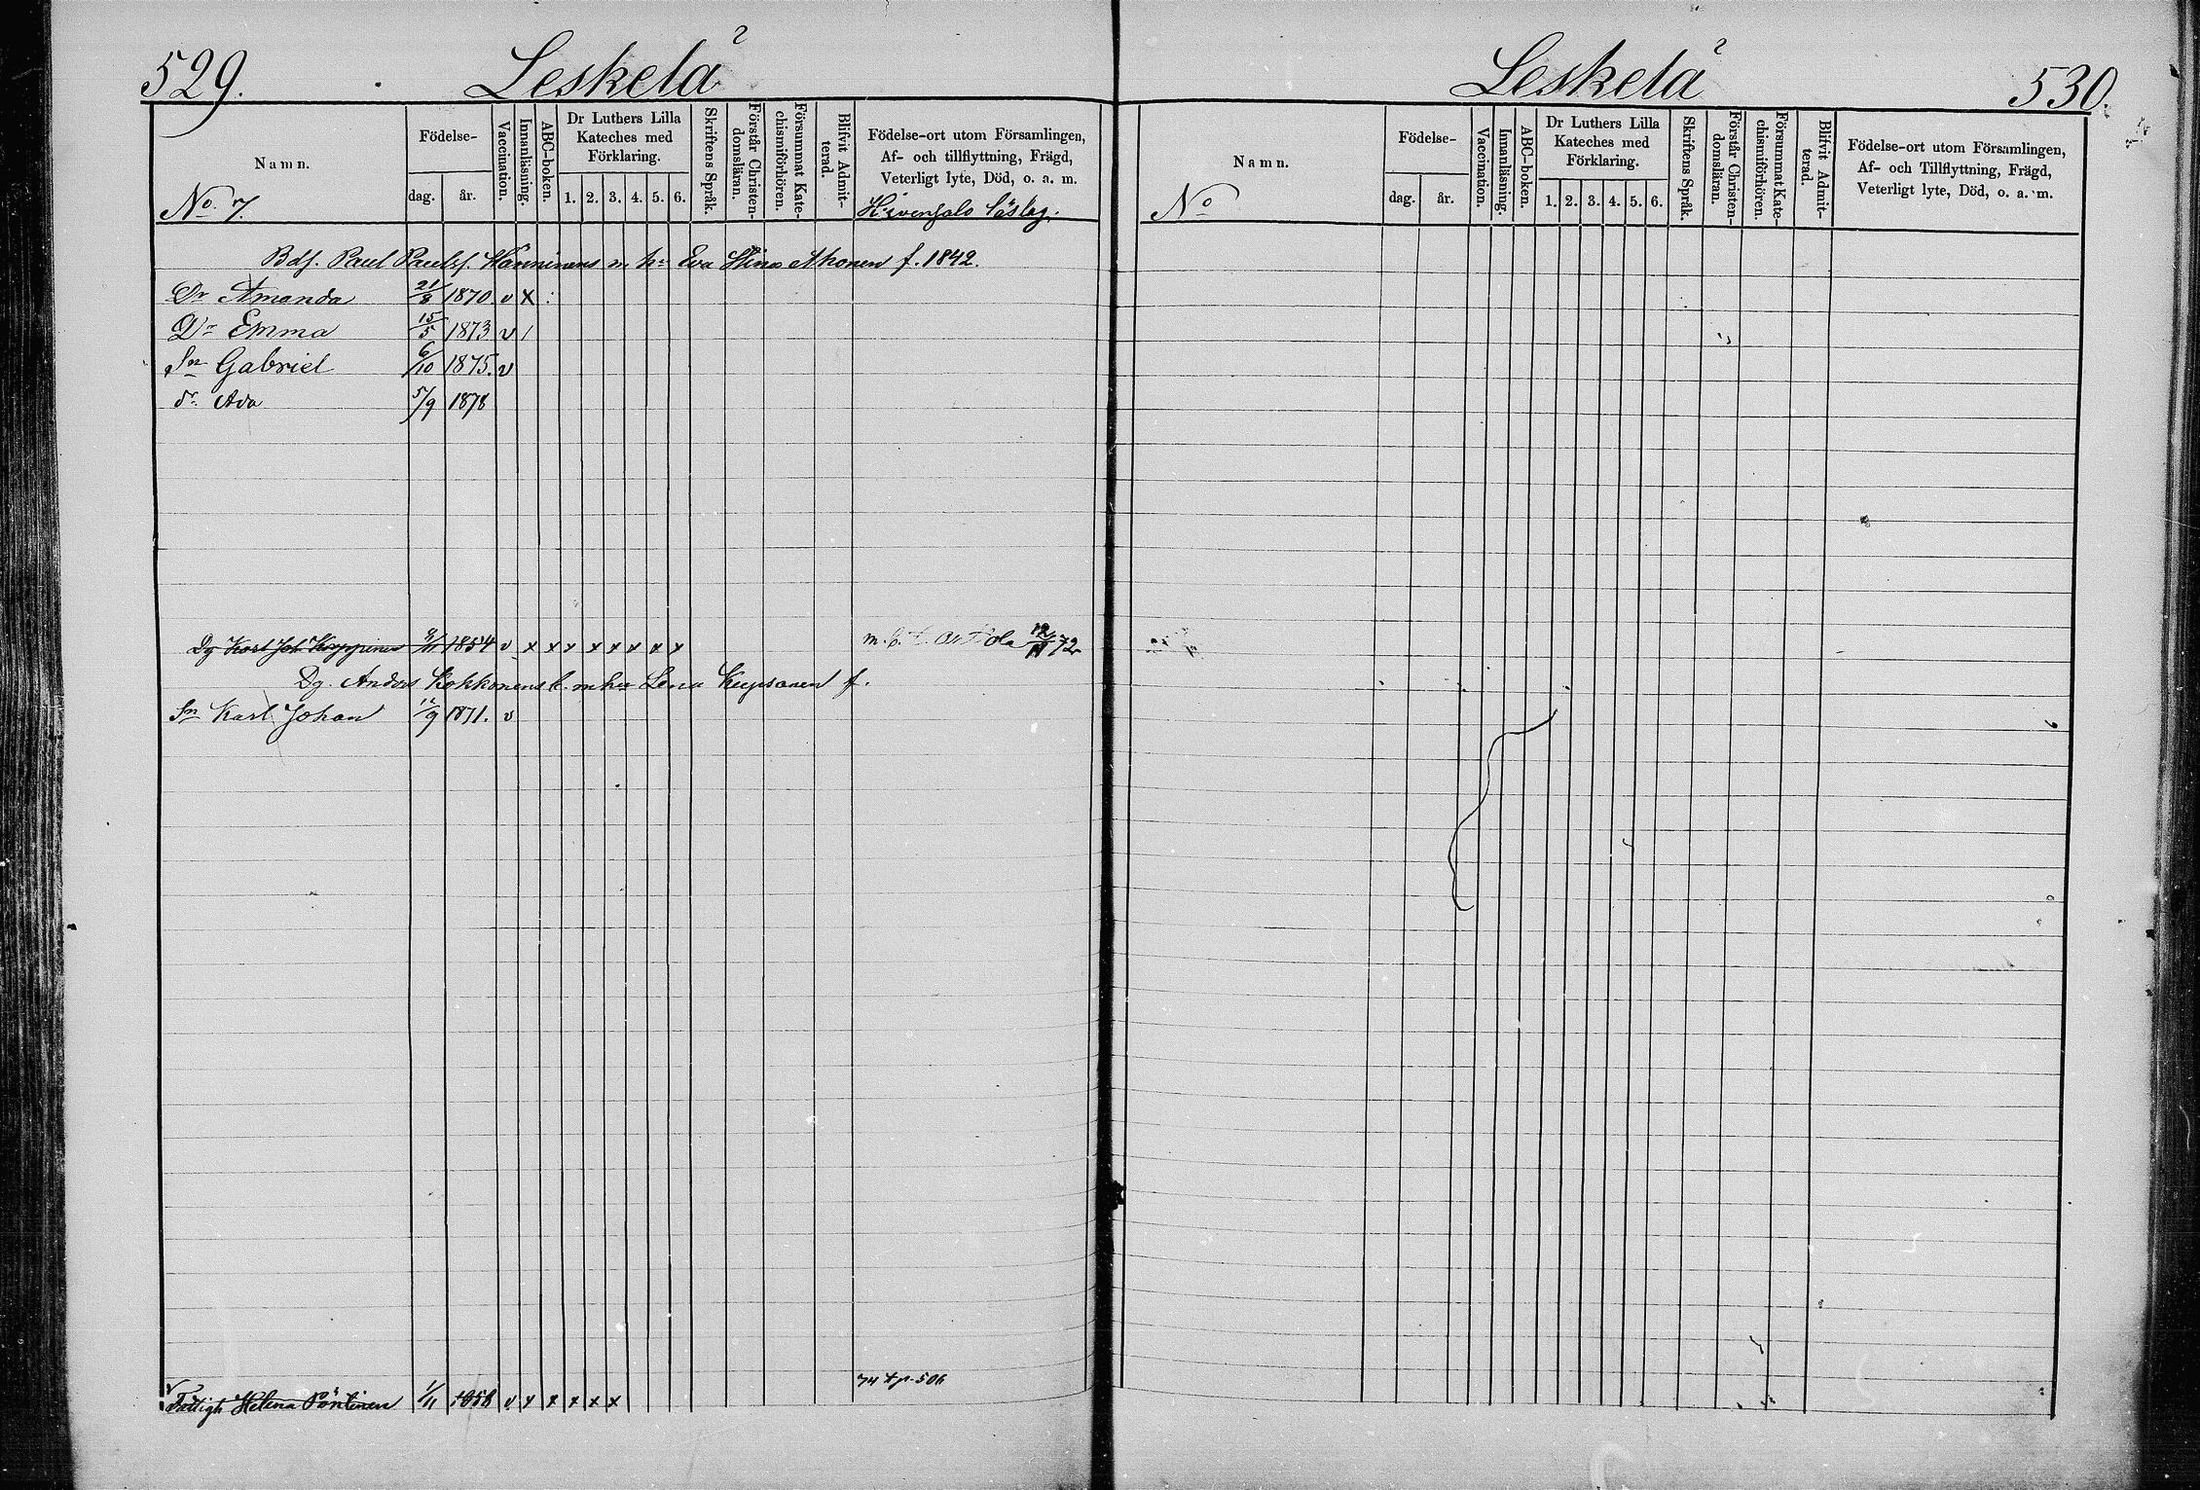 529. Leskelä
Namn.
No. 7.
Födelse-
dag. år.
Vaccination.
Innanläsning.
ABC-boken.
Dr Luthers Lilla
Kateches med
Förklaring.
1. 2. 3. 4. 5. 6.
Skriftens Språk.
Förstår Christen-
domsläran.
Försummat Kate-
chismiförhören.
Blifvit Admit-
terad.
Födelse-ort utom Församlingen,
Af- och tillflyttning, Frägd,
Veterligt lyte, Död, o. a. m.
Hirvensalo
Bdf. Paul Paulsf. Hänninens m. h. Eva Stina Ahonen f. 1842.
Dr Amanda 21/8 1870. v x
Dr Emma 15/5 1873 v /
Sn Gabriel 6/10 1875. v
dr Ada 5/9 1878
Dg Karl Joh. 1854 v x x x x x x x x 72
Dg. Anders Kokkonens m hu Lena f.
Sn Karl Johan 1871. v
74 tp. 506
Fattigh Helena Pöntinen 1/11 1858 v x x x x x
Leskelä 530.
Namn.
No
Födelse-
dag. år.
Vaccination.
Innanläsning.
ABC-boken.
Dr Luthers Lilla
Kateches med
Förklaring.
1. 2. 3. 4. 5. 6.
Skriftens Språk.
Förstår Christen-
domsläran.
Försummat Kate-
chismiförhören.
Blifvit Admit-
terad.
Födelse-ort utom Församlingen,
Af- och Tillflyttning, Frägd,
Veterligt lyte, Död, o. a. m.